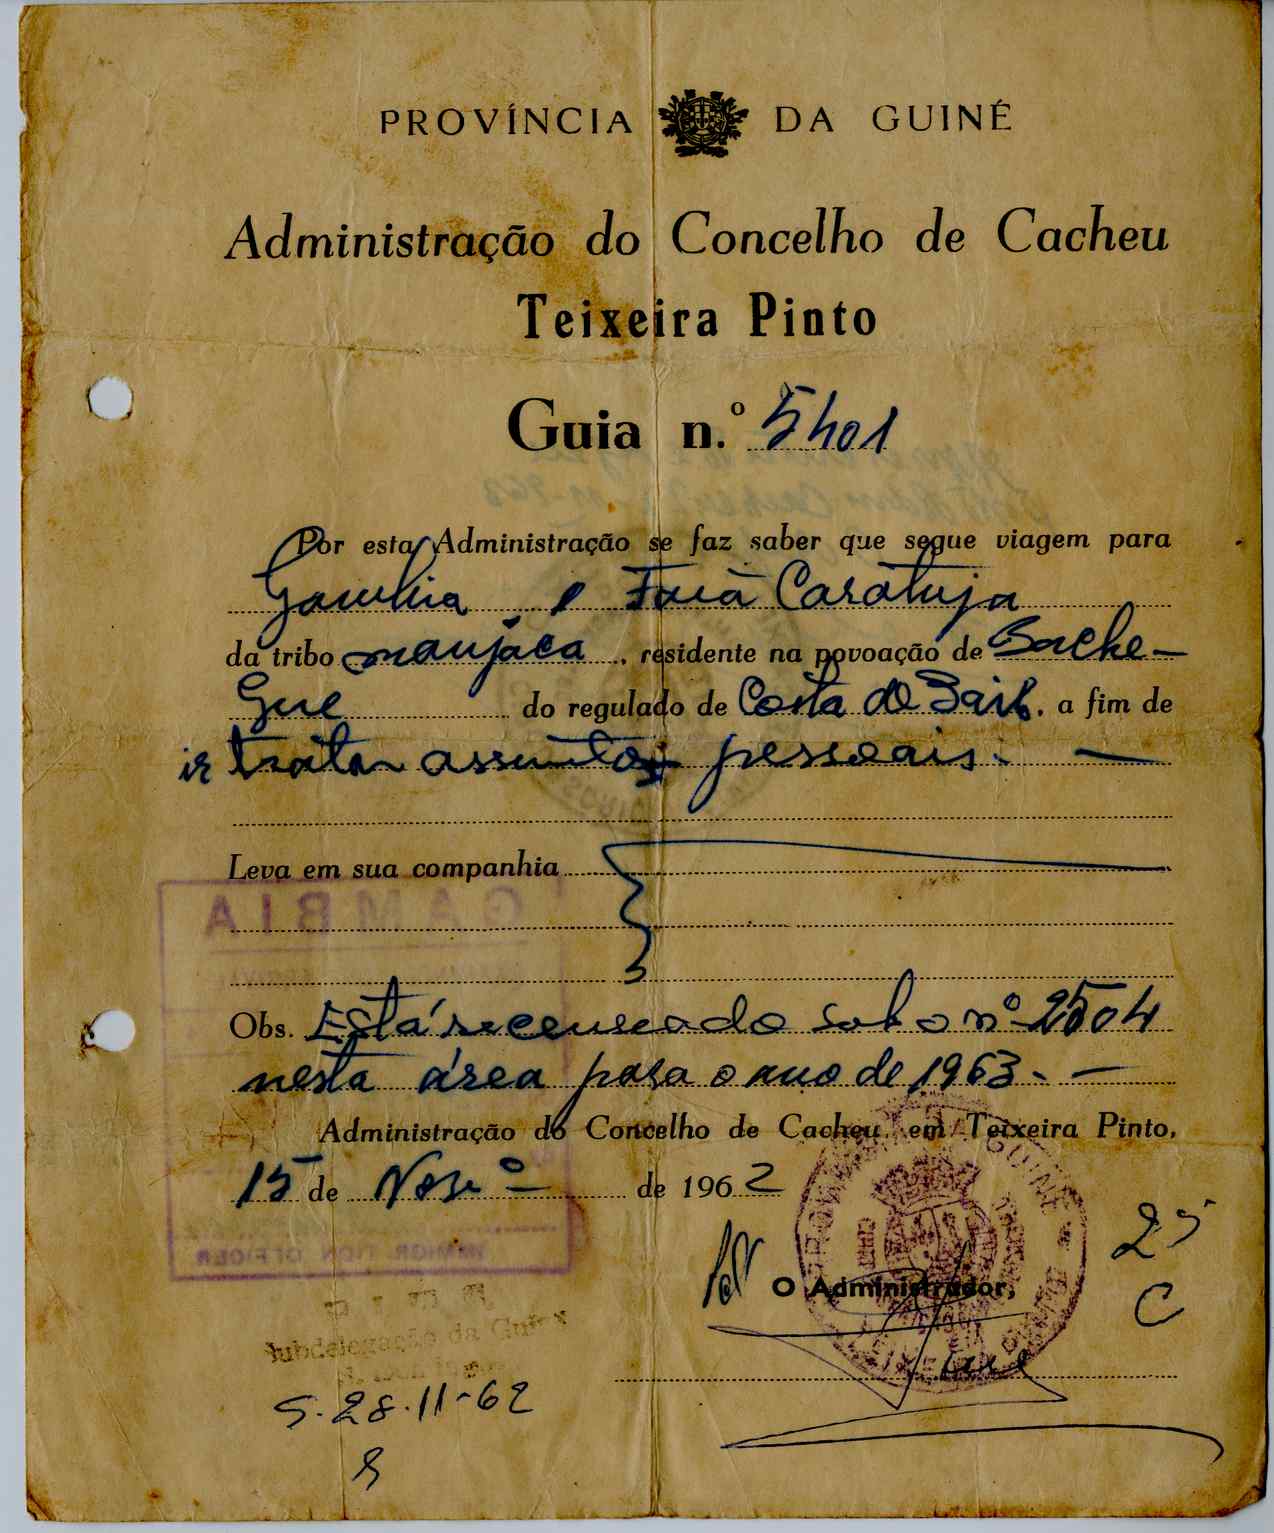 PROVÍNCIA DA GUINÉ
Administração do Concelho de Cacheu
Teixeira Pinto
Guia n.º 5401
Por esta Administração se faz saber que segue viagem para
Gambia, o Faiá Caratuja
da tribo manjaca, residente na povoação de Bache-
Gue do regulado de Costa de Baix. a fim de
ir tratar assuntos pessoais. —
Leva em sua companhia
Obs. Está recenseado sob o nº 2504
nesta área para o ano de 1963. —
Administração do Concelho de Cacheu, em Teixeira Pinto,
15 de Novº de 1962
O Administrador,
GAMBIA
Subdelegação da Guiné
S. 28-11-62